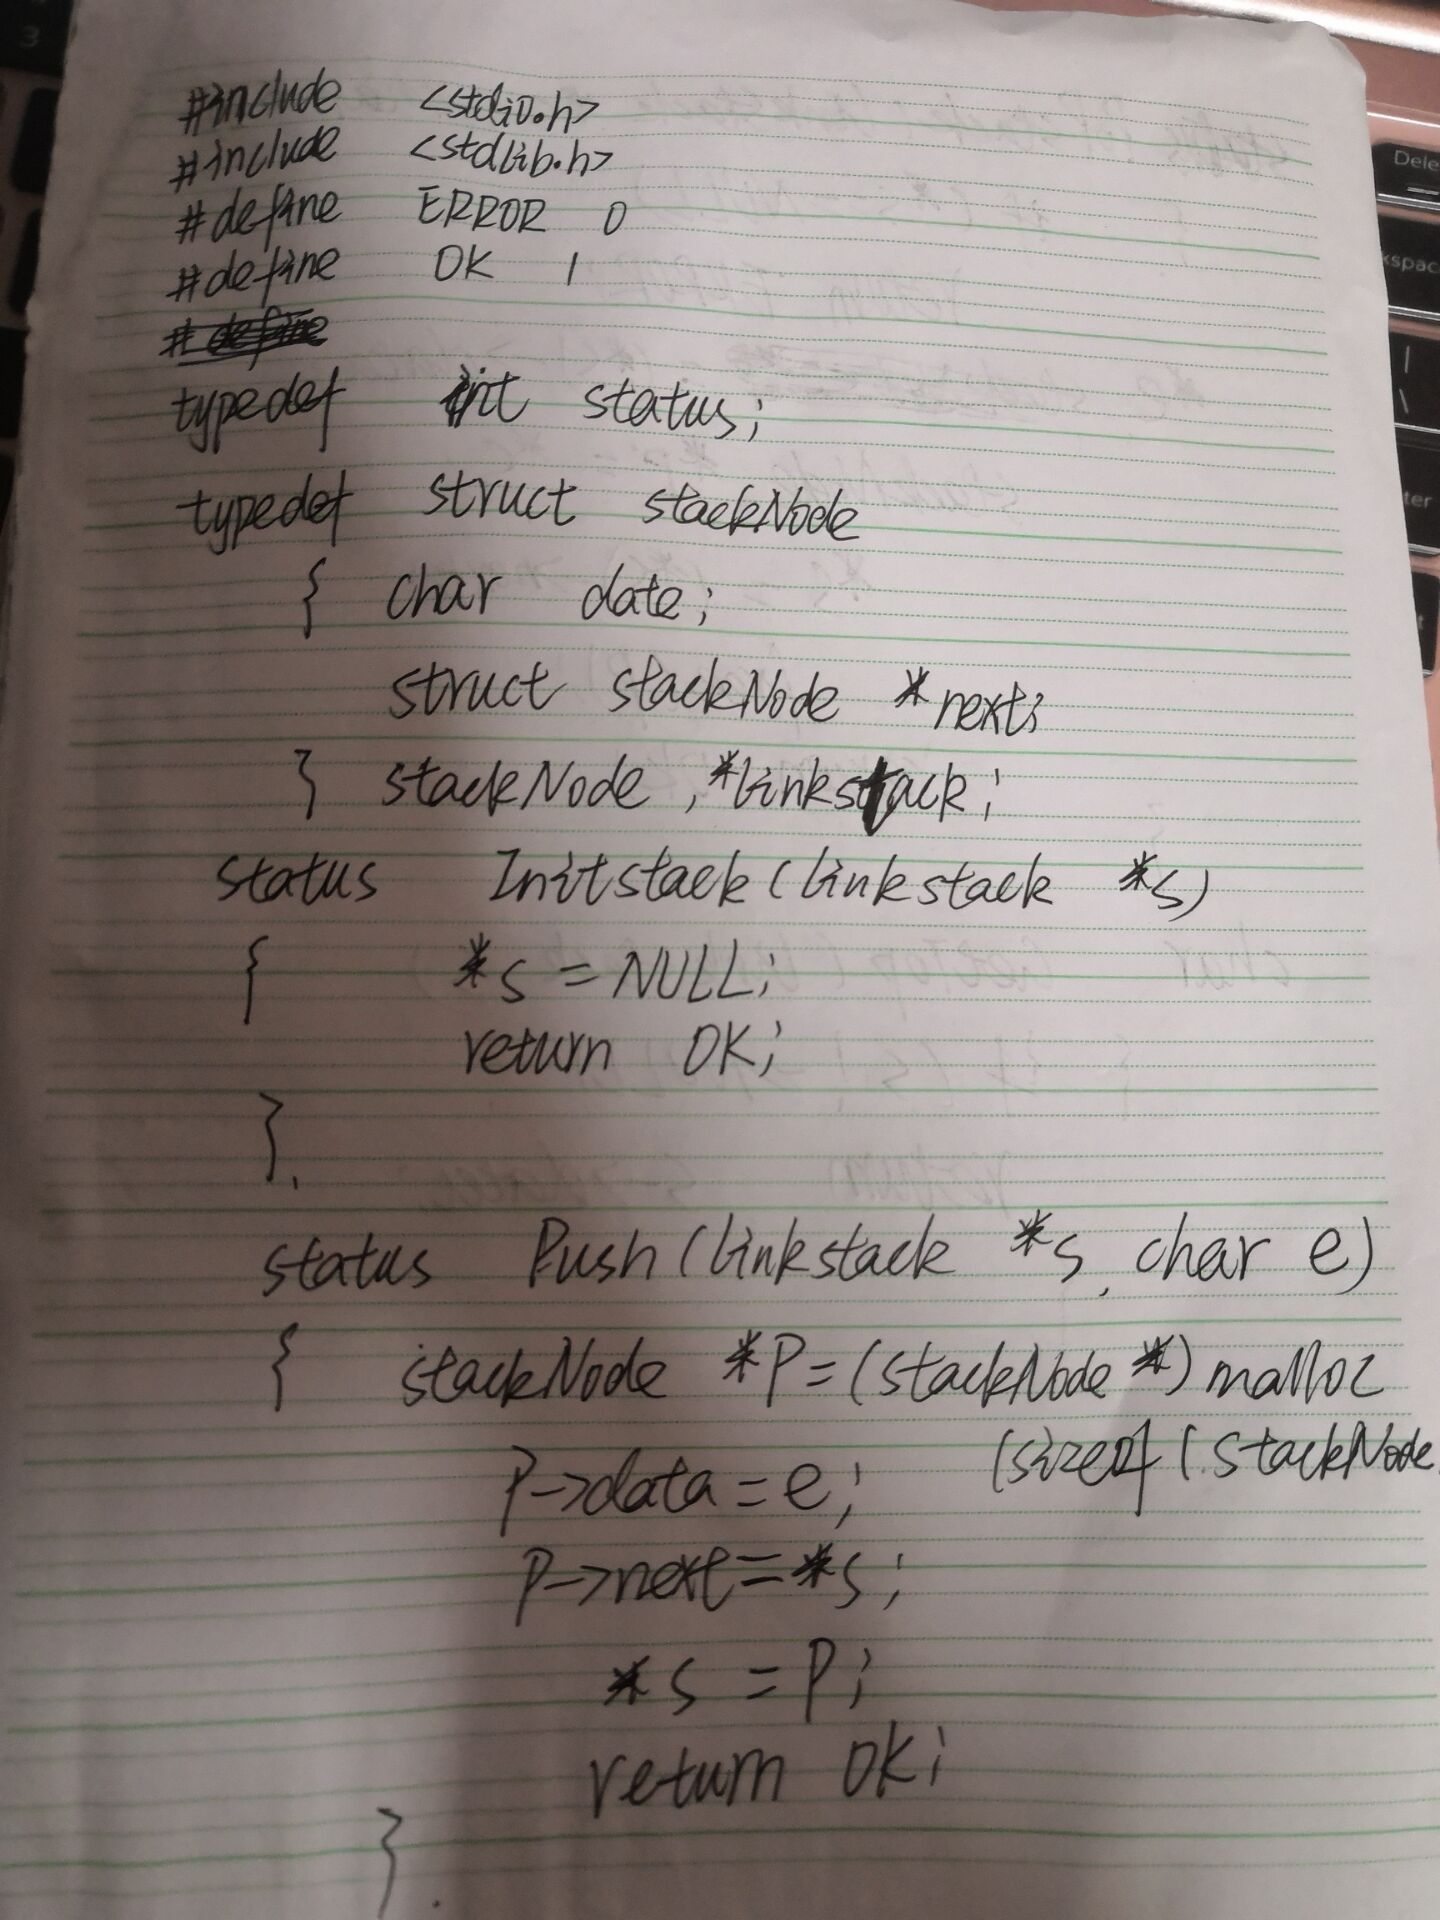 #include <stdio.h>
#include <stdlib.h>
#define ERROR 0
#define OK 1
# define
typedef int status;
typedef struct stackNode
{ char date;
struct stackNode *next;
} stackNode, *linkstack;
status Initstack(linkstack *s)
{ *s = NULL;
return OK;
}.
status Push(linkstack *s, char e)
{ stackNode *P=(stackNode *) malloc
(sizeof (stackNode
P->data = e;
P->next = *s;
*s = P;
return OK;
}.